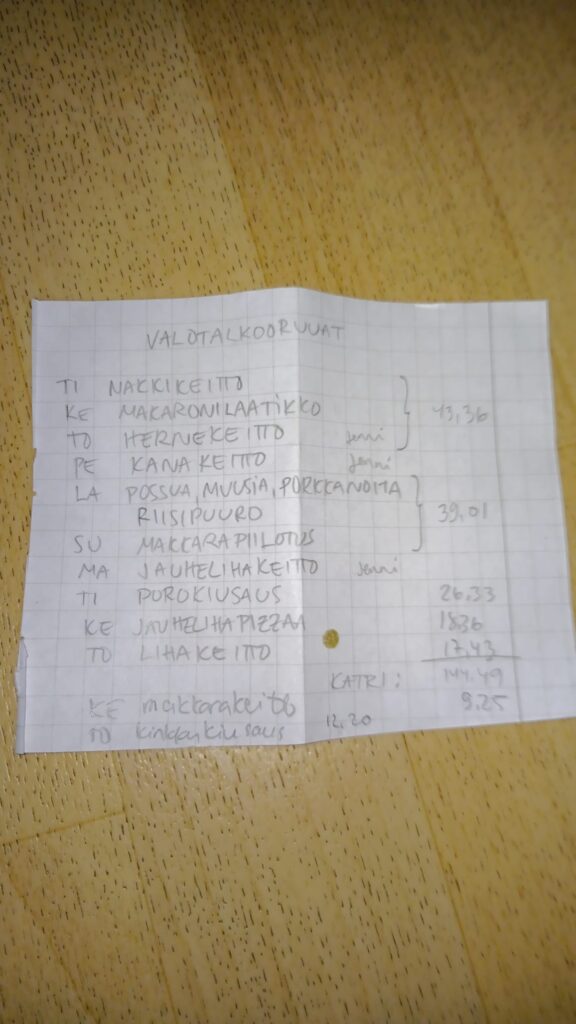 VALOTALKOORUUAT
TI NAKKIKEITTO
KE MAKARONILAATIKKO 43,36
TO HERNEKEITTO Jenni
PE KANAKEITTO Jenni
LA POSSUA, MUUSIA, PORKKANOITA
RIISIPUURO 39,01
SU MAKKARAPIILOTUS
MA JAUHELIHAKEITTO Jenni
TI POROKIUSAUS 26,33
KE JAUHELIHAPIZZAA 18,36
TO LIHAKEITTO 17,43
KATRI: 144,49
KE makkarakeitto 9,25
TO kinkkukiusaus 12,20